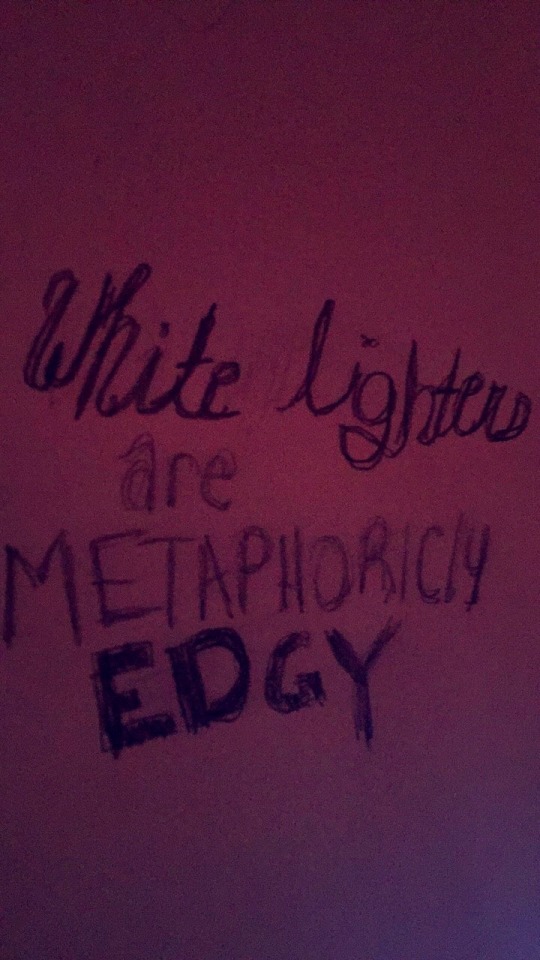 White lighters
are
METAPHORICly
EDGY